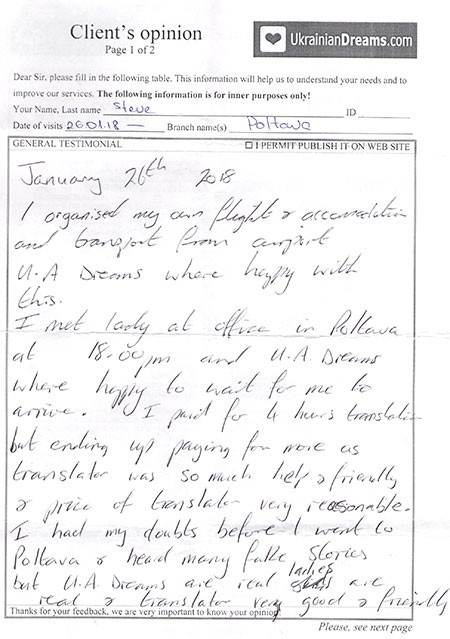 Client's opinion
Page 1 of 2
UkrainianDreams.com
Dear Sir, please fill in the following table. This information will help us to understand your needs and to
improve our services. The following information is for inner purposes only!
Your Name, Last name Steve ID
Date of visits 26.01.18 — Branch name(s) Poltava
GENERAL TESTIMONIAL ☐ I PERMIT PUBLISH IT ON WEB SITE
January 26th 2018
I organised my own flight & accomodation
and transport from airport
U.A Dreams where happy with
this.
I met lady at office in Poltava
at 18.00pm and U.A. Dreams
where happy to wait for me to
arrive. I paid for 4 hours translation
but ending up paying for more as
translator was so much help & friendly
& price of translator very reasonable.
I had my doubts before I went to
Poltava & heard many fake stories
but U.A. Dreams are real ladies are
real & translator very good & friendly
Thanks for your feedback, we are very important to know your opinion
Please, see next page